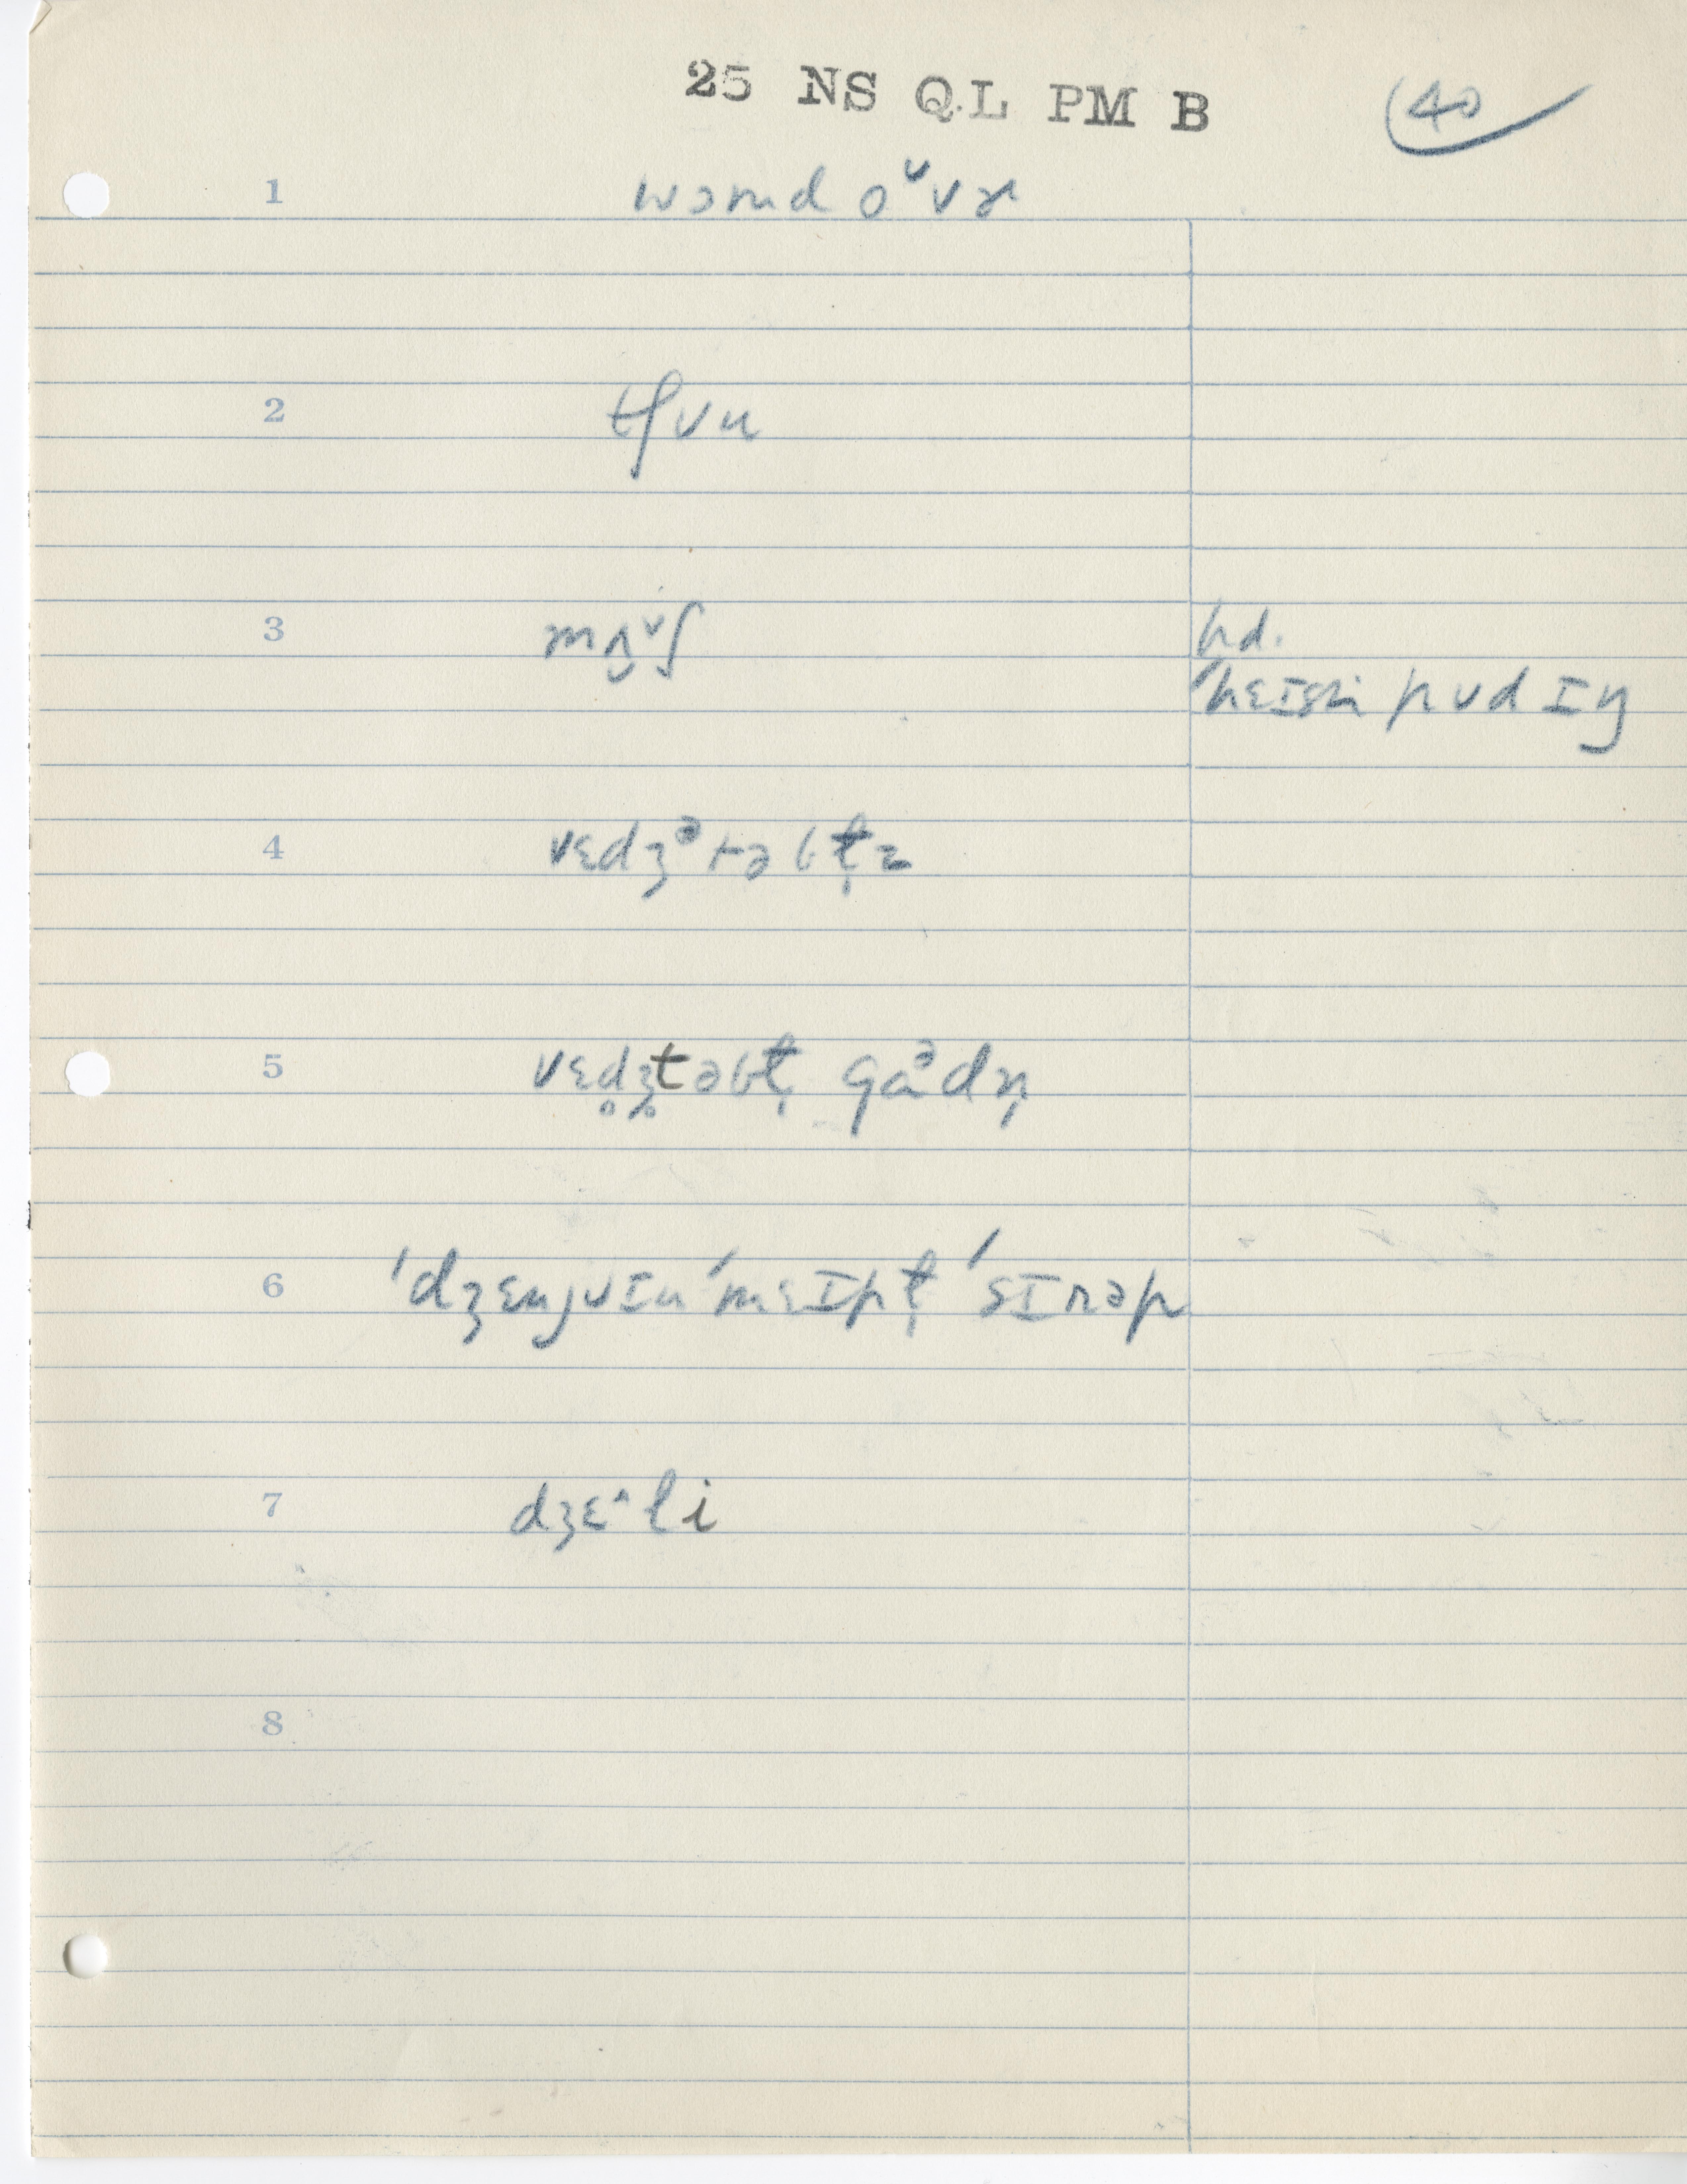 25 NS QL PM B
40
1 wɔɹmd oᶷvɚ
2 tʃuu
3 mʌᶷʃ
hd.
ˈheɪsti pudɪŋ
4 vɛdʒᵊtəbɫ̩z
5 vɛd̥ʒ̊təbɫ̩ gaᵊdn̩
6 ˈdʒɛnjuɪn ˈmɛɪpɫ̩ ˈsɪrəp
7 dʒɛ^li
8